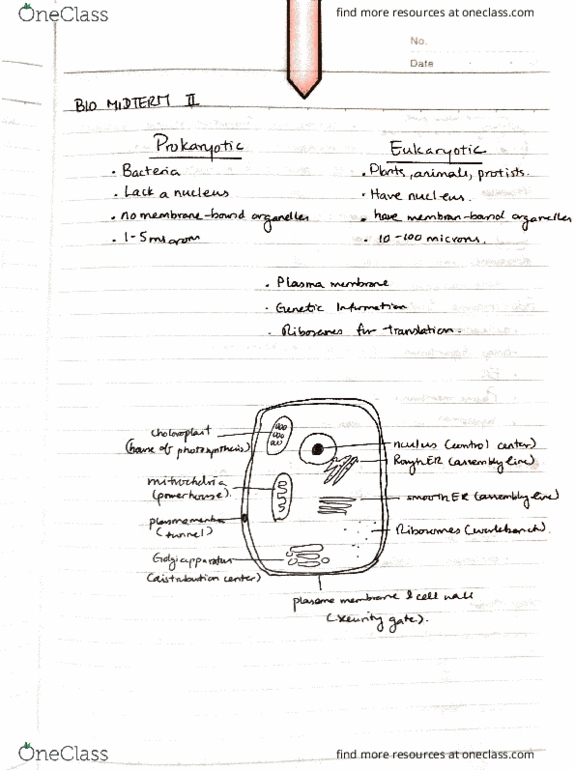 OneClass
find more resources at oneclass.com
No.
Date
BIO MIDTERM II
Prokaryotic
Eukaryotic
• Bacteria
• Plants, animals, protists.
• Lack a nucleus
• Have nucleus.
• no membrane-bound organelles
• have membran-bound organelles
• 1-5 microns
• 10-100 microns.
• Plasma membrane
• Genetic Information
• Ribosomes for translation.
chloroplast
(home of photosynthesis)
nculus (control center)
Rough ER (assembly line)
mitochdria
(powerhouse).
smooth ER (assembly line)
plasmamembra
(tunnel)
Ribosomes (workbench).
Golgi apparatus
(distribution center)
plasma membrane & cell wall
(security gate).
OneClass
find more resources at oneclass.com